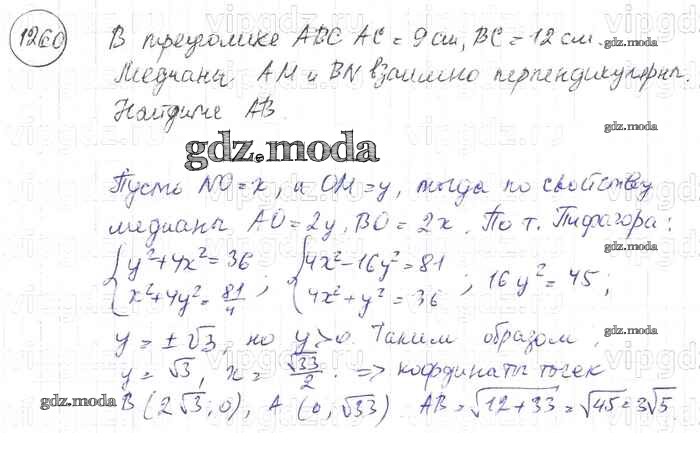 1260 В треуголике ABC AC = 9 см, BC = 12 см.
Медианы AM и BN взаимно перпендикулярны.
Найдите AB.
gdz.moda
Пусть NO = x, и OM = y, тогда по свойству
медианы AO = 2y, BO = 2x. По т. Пифагора:
{ y² + 4x² = 36 ; { 4x² - 16y² = 81 ; 16y² = 45;
{ x² + 4y² = 81/4 { 4x² + y² = 36
y = ±√3, но y > 0. Таким образом,
y = √3, x = √33/2. => координаты точек
B (2√3; 0), A (0, √33) AB = √12+33 = √45 = 3√5
gdz.moda
gdz.moda
gdz.moda
gdz.moda
gdz.moda